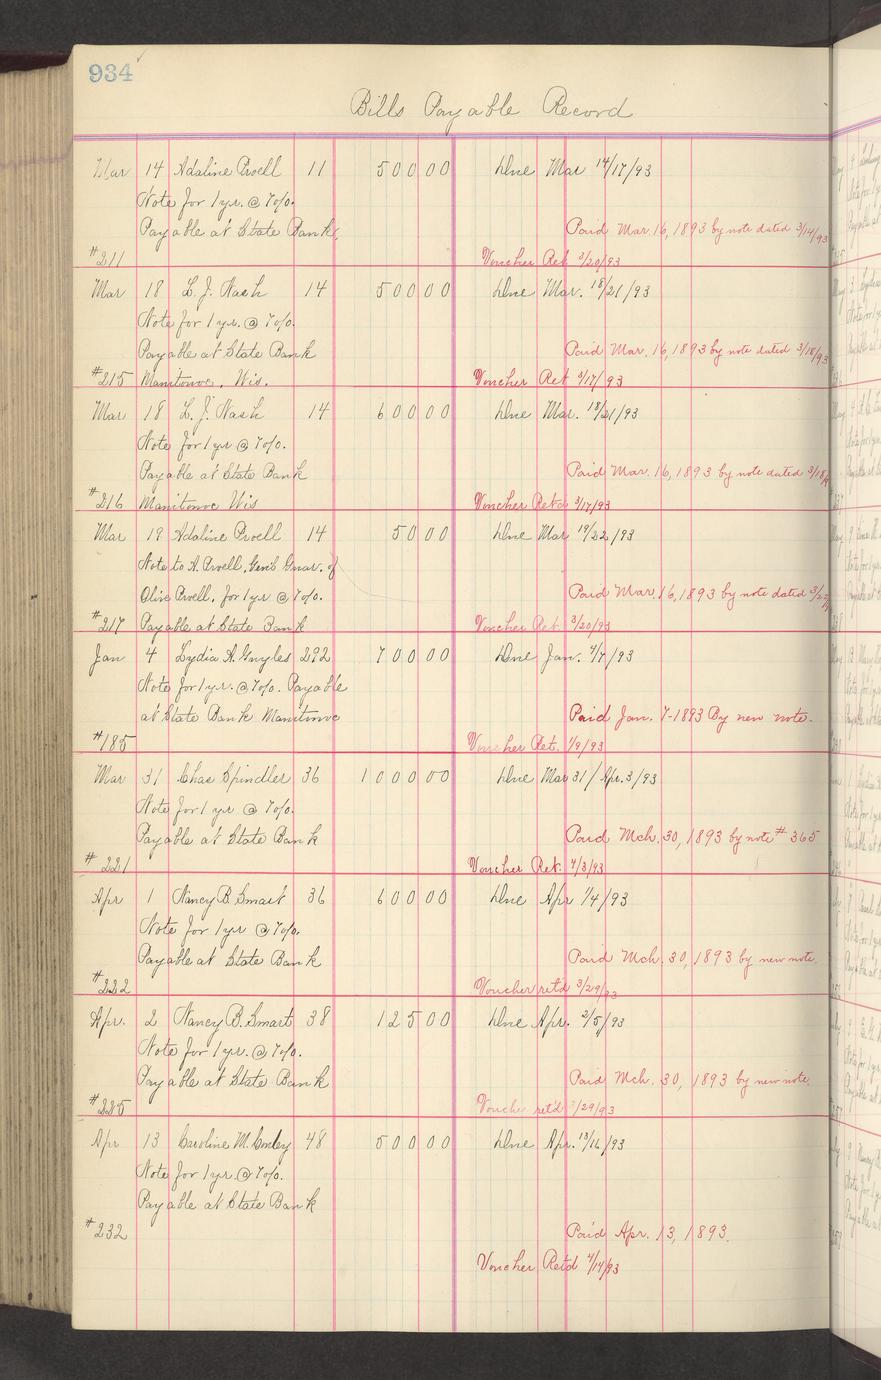 934
Bills Payable Record
Mar 14 Adaline Powell 11 500 00 Due Mar 14/17/93
Note for 1 yr. @ 7%.
Payable at State Bank. Paid Mar. 16, 1893 by note dated 3/14/93
#211 Voucher Ret 3/20/93
Mar 18 L. J. Nash 14 500 00 Due Mar. 18/21/93
Note for 1 yr. @ 7%.
Payable at State Bank Paid Mar. 16, 1893 by note dated 3/18/93
#215 Manitowoc, Wis. Voucher Ret 3/17/93
Mar 18 L. J. Nash 14 600 00 Due Mar. 18/21/93
Note for 1 yr @ 7%.
Payable at State Bank Paid Mar. 16, 1893 by note dated 3/18/
#216 Manitowoc Wis Voucher Retd 3/17/93
Mar 19 Adaline Powell 14 50 00 Due Mar 19/22/93
Note to A. Powell, Gen'l Guar. of
Olive Powell, for 1 yr @ 7%. Paid Mar. 16, 1893 by note dated
#217 Payable at State Bank Voucher Ret. 3/20/93
Jan 4 Lydia A. 292 700 00 Due Jan. 4/7/93
Note for 1 yr. @ 7%. Payable
at State Bank Manitowoc Paid Jan. 7-1893 By new note.
#185 Voucher Ret. 1/9/93
Mar 31 Chas Spindler 36 1000 00 Due Mar 31/Apr. 3/93
Note for 1 yr @ 7%.
Payable at State Bank Paid Mch. 30, 1893 by note # 365
# 221 Voucher Ret. 4/3/93
Apr 1 Nancy B. Smart 36 600 00 Due Apr 1/4/93
Note for 1 yr @ 7%.
Payable at State Bank Paid Mch. 30, 1893 by new note.
#222 Voucher ret'd 3/29/93
Apr. 2 Nancy B. Smart 38 125 00 Due Apr. 2/5/93
Note for 1 yr. @ 7%.
Payable at State Bank Paid Mch. 30, 1893 by new note.
#225 Vouche ret'd 3/29/93
Apr 13 Caroline M. Conley 48 500 00 Due Apr. 13/16/93
Note for 1 yr. @ 7%.
Payable at State Bank
#232 Paid Apr. 13, 1893.
Voucher Retd 4/14/93